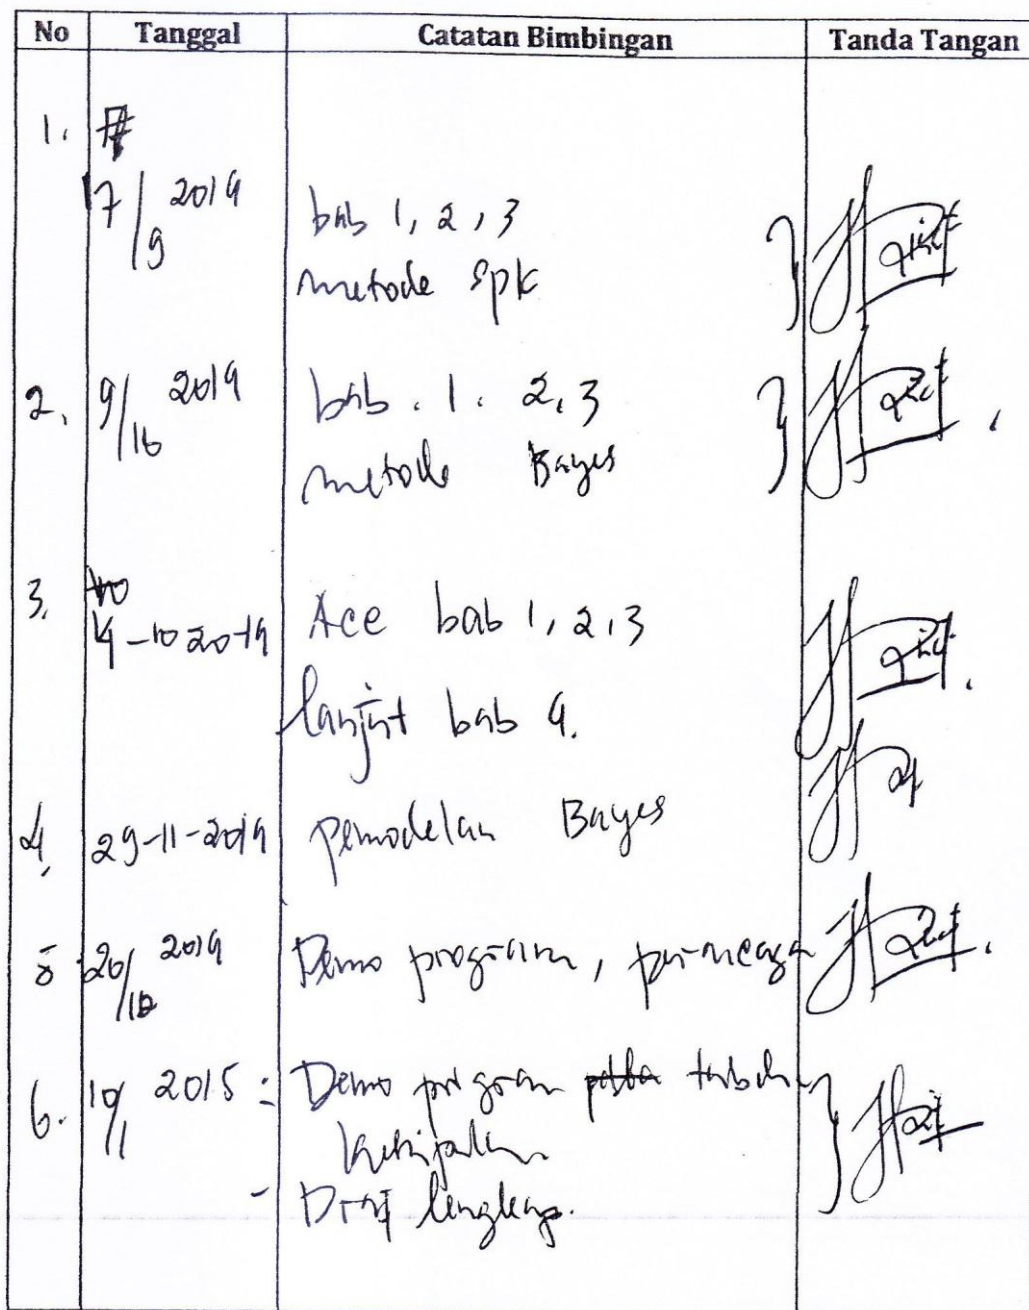 No Tanggal Catatan Bimbingan Tanda Tangan
1.
17/9 2014 bab 1, 2, 3
metode spk
2. 9/10 2014 bab . 1 . 2, 3
metode Bayes
3.
14-10 2014 Acc bab 1, 2, 3
lanjut bab 4.
4. 29-11-2014 pemodelan Bayes
5 20/12 2014 Demo program,
6. 10/1 2015 : Demo program
- Draf lengkap.